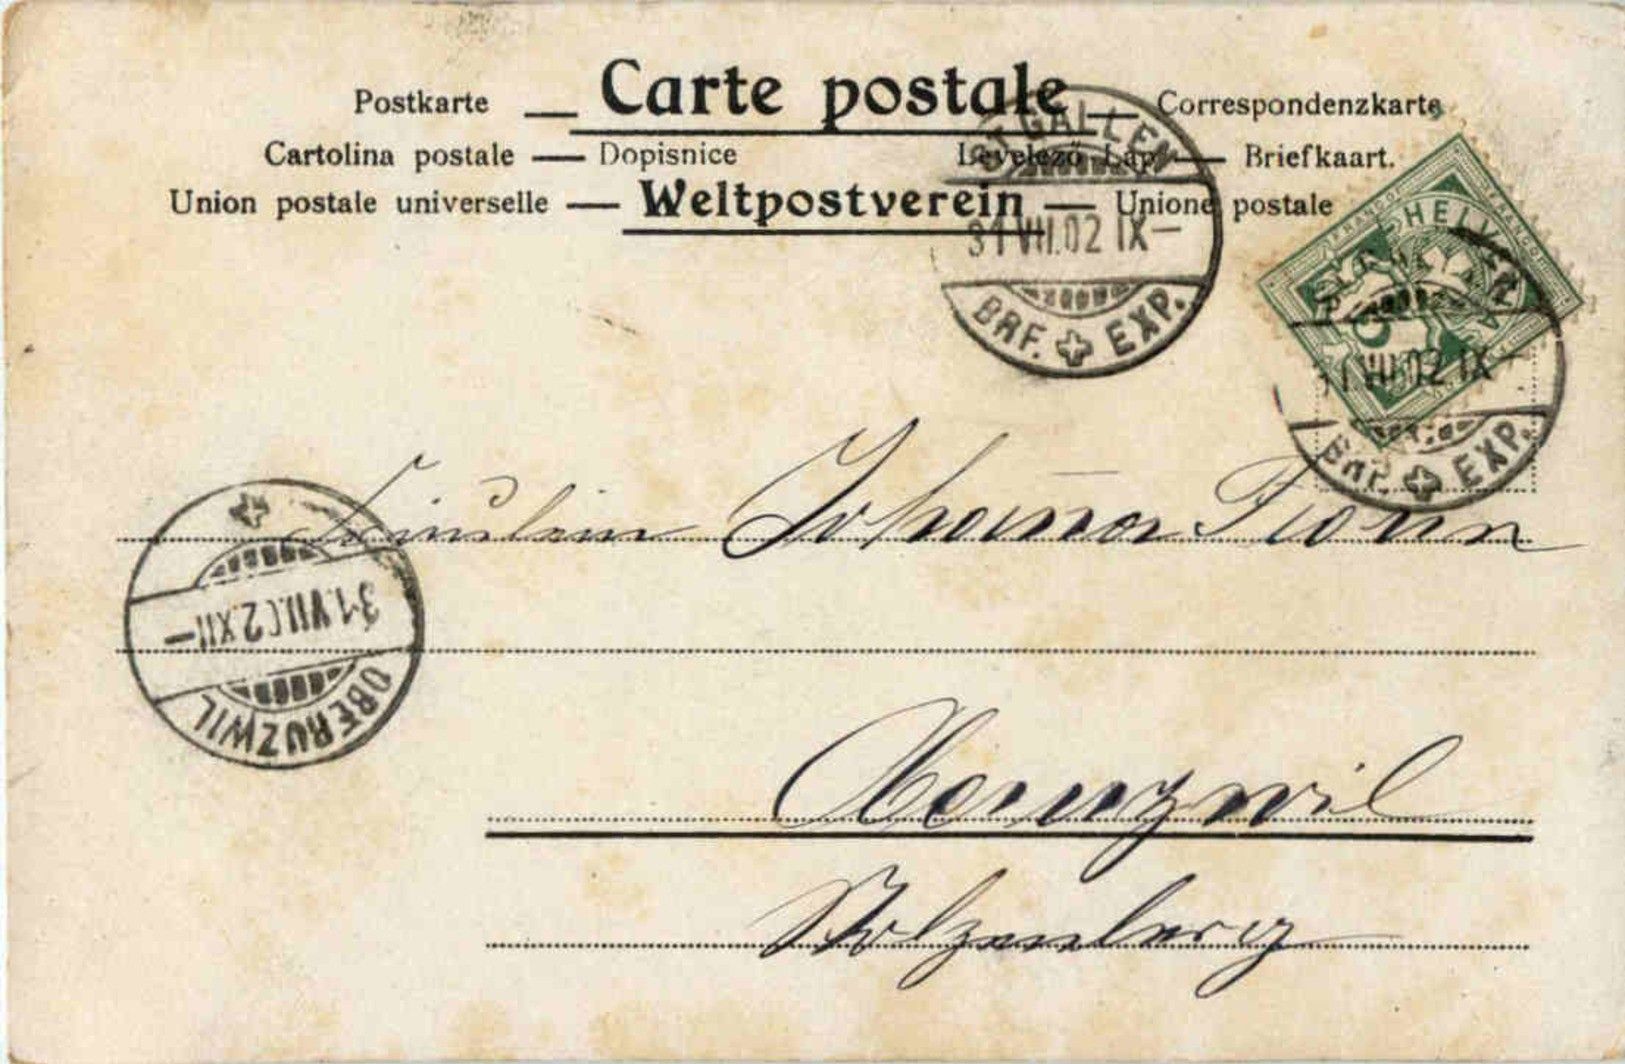 Postkarte — Carte postale — Correspondenzkarte
Cartolina postale — Dopisnice Levelező Lap. — Briefkaart.
Union postale universelle — Weltpostverein — Unione postale
ST. GALLEN
31.VII.02 IX—
BRF. EXP.
FRANCO FRANCO
HELVETIA
5
VII.02 IX—
BRF. EXP.
Fräulein Johanna
31.VII.02.XII—
OBERUZWIL
Oberuzwil
Stolzenberg